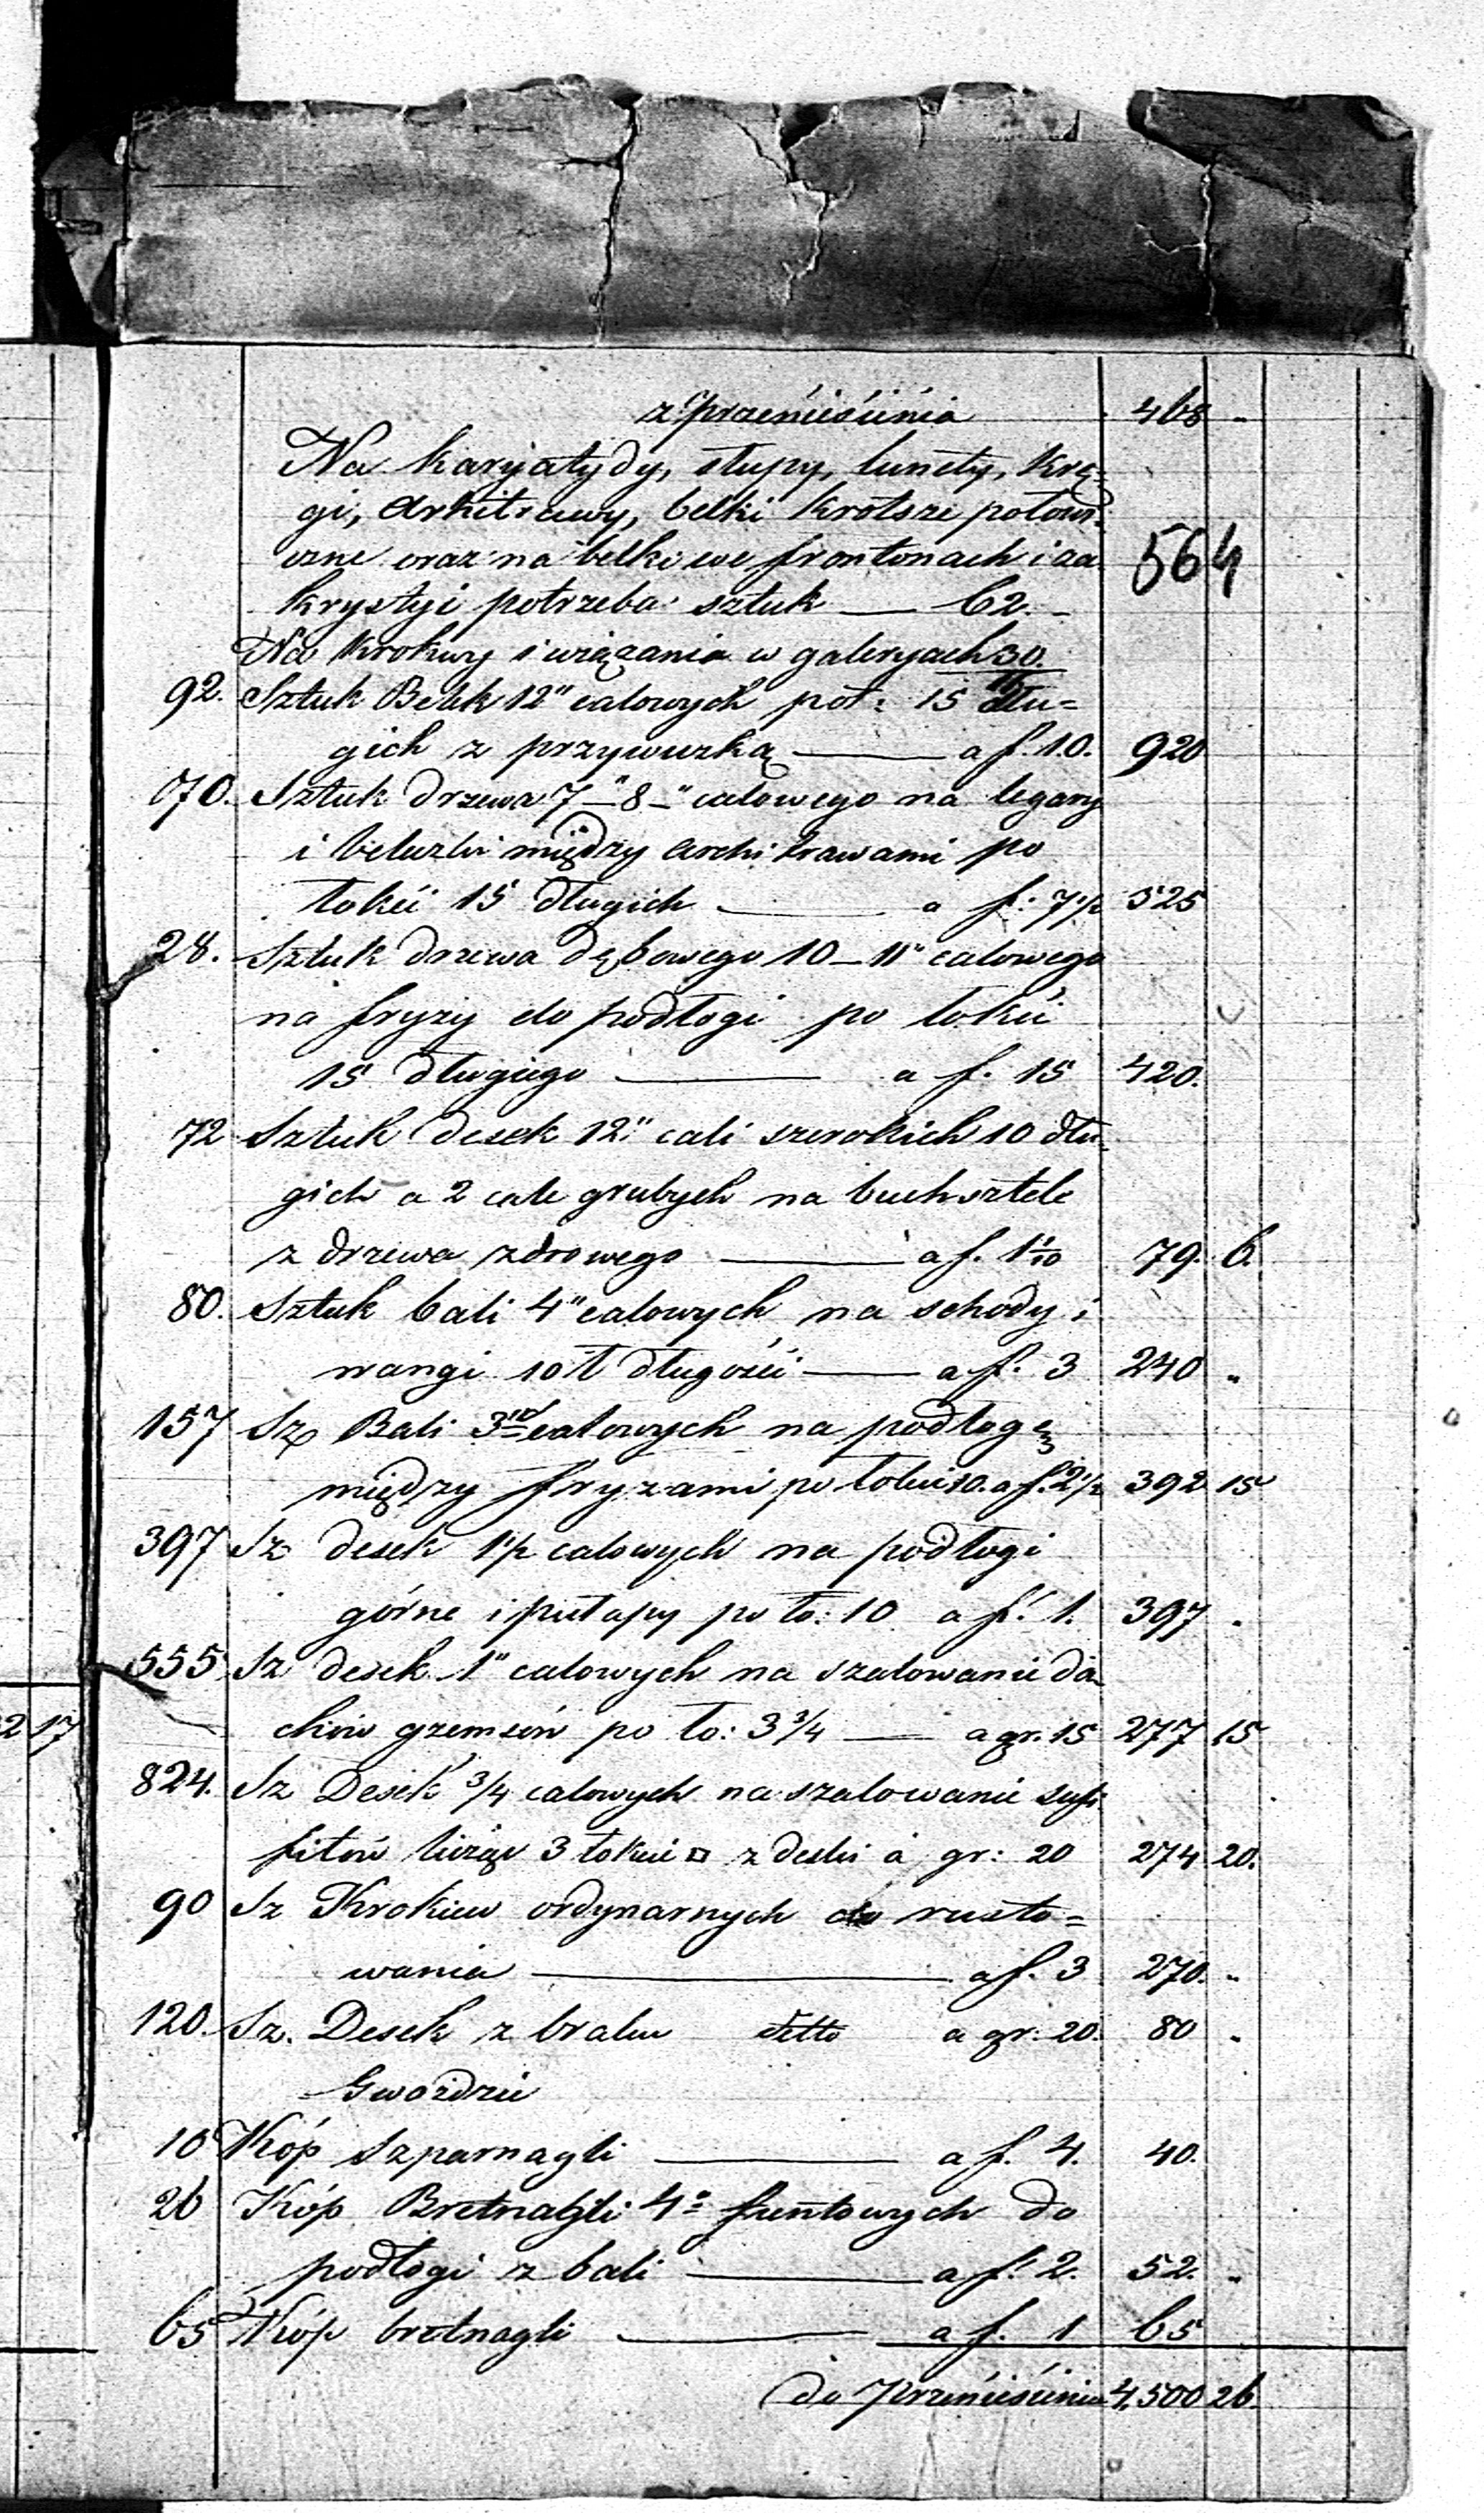 z przeniesienia 468 "
Na karyjatydy, słupy, lunety, krę-
gi, Arkitrawy, belki krótsze połow-
czne oraz na belki we frontonach i za
krystyi potrzeba sztuk — 62.
564
Na Krokwy i wiązania w galeryach 30.
92. Sztuk Belek 12" calowych poł: 15 dłu=
gich z przywózką — a f. 10. 920
70. Sztuk drzewa 7–"8–" calowego na legary
i beluzki między architrawami po
łokci 15 długich — a f: 7 1/2 525
28. Sztuk drzewa dębowego 10–11" calowego
na fryzy do podłogi po łokci
15 długiego — a f. 15 420.
72 Sztuk desek 12" cali szerokich 10 dłu-
gich a 2 cale grubych na buchsztele
z drzewa zdrowego — a f. 1 1/10 79. 6.
80. Sztuk bali 4" calowych na schody i
wangi 10 ł długości — a f. 3 240 "
157 Sz Bali 3 calowych na podłogę
między fryzami po łokci 10. a f. 2 1/2 392 15
397 Sz desek 1 1/2 calowych na podłogi
górne i pułapy po ło: 10 a f. 1. 397 "
555 Sz desek 1" calowych na szalowanie da-
chów gzemsów po ło: 3 3/4 — a gr. 15 277 15
2 17
824. Sz Desek 3/4 calowych na szalowanie sufi
fitów licząc 3 łokcie □ z deski á gr: 20 274 20.
90 Sz Krokiew ordynarnych doruszto=
wania — a f. 3 270. "
120. Sz. Desek z braku detto a gr: 20. 80 "
Gwoździe
10 Kóp Szparnagli — a f. 4. 40.
26 Kóp Bretnagli 4" funtowych do
podłogi z bali — a f. 2. 52. "
65 Kóp bretnagli — a f. 1 65
do Przeniesienia 4,500 26.